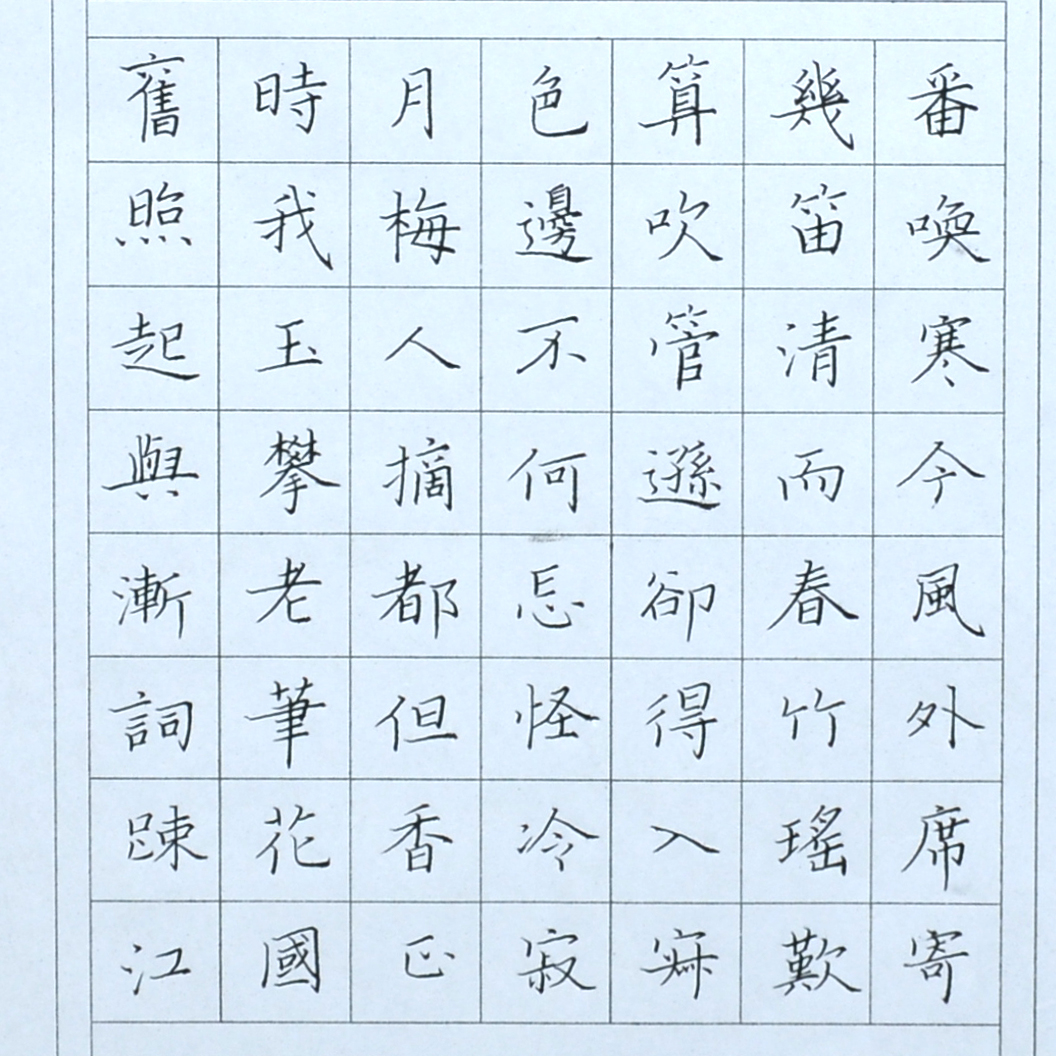 舊時月色算幾番
照我梅邊吹笛喚
起玉人不管清寒
與攀摘何遜而今
漸老都忘卻春風
詞筆但怪得竹外
踈花香冷入瑤席
江國正寂寂歎寄